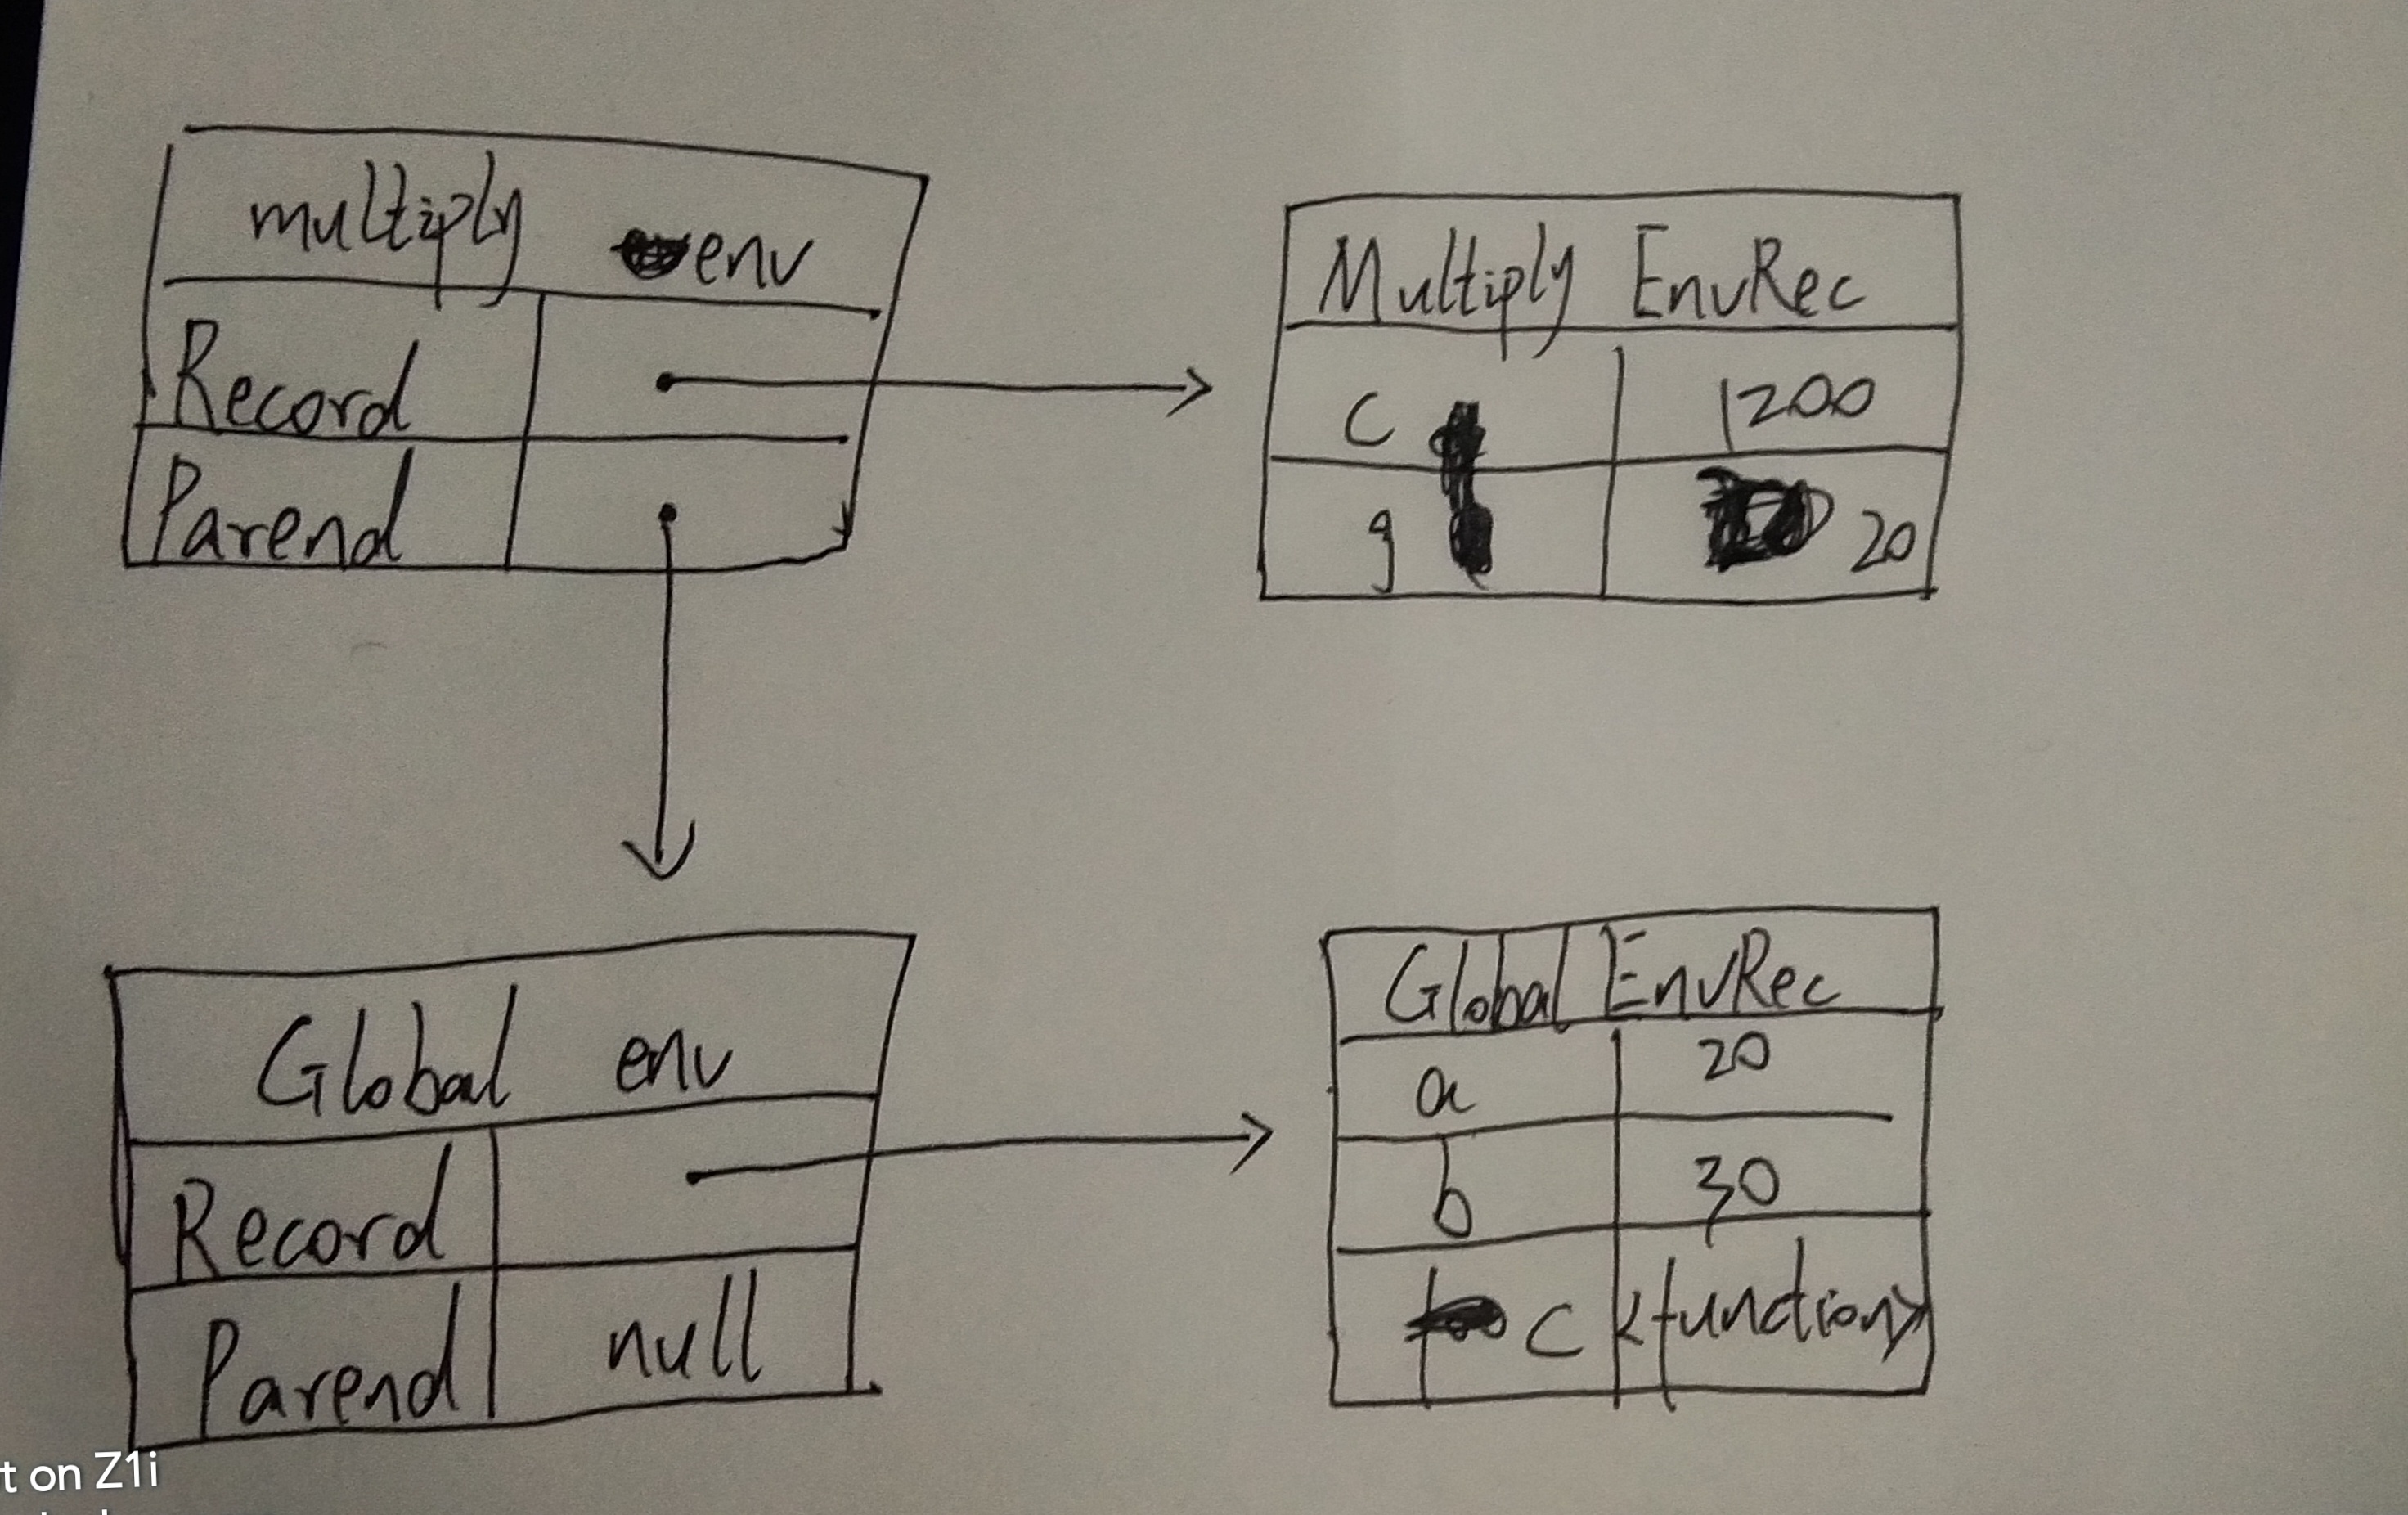 multiply env
Record
Parend
Multiply EnvRec
c 1200
g 20
Global env
Record
Parend null
Global EnvRec
a 20
b 30
c <function>
t on Z1i